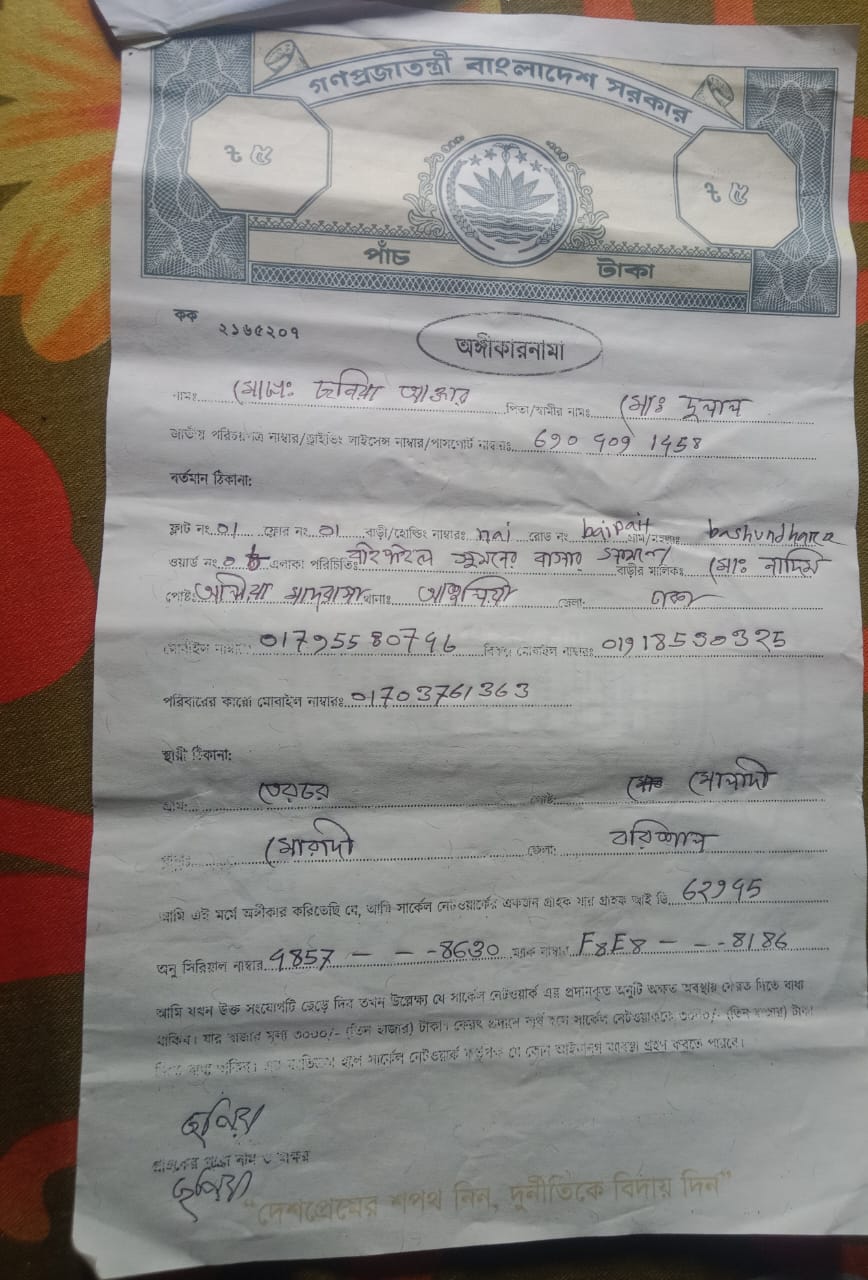 গণপ্রজাতন্ত্রী বাংলাদেশ সরকার
৳ ৫ ৳ ৫
পাঁচ টাকা
কক ২১৬৫২০৭
অঙ্গীকারনামা
নামঃ মোসাঃ জনিয়া আক্তার পিতা/স্বামীর নামঃ মোঃ দুলাল
জাতীয় পরিচয়পত্র নাম্বার/ড্রাইভিং লাইসেন্স নাম্বার/পাসপোর্ট নাম্বারঃ 690 909 1458
বর্তমান ঠিকানা:
ফ্লাট নং 01 ফ্লোর নং 01 বাড়ী/হোল্ডিং নাম্বারঃ nai রোড নং baipail গ্রাম/মহল্লাঃ bashundhara
ওয়ার্ড নং 06 এলাকা পরিচিতিঃ বাইপাইল সুমনের বাসার বাড়ীর মালিকঃ মোঃ নাদিম
পোষ্টঃ আলিয়া মাদরাসা থানাঃ আশুলিয়া জেলা: ঢাকা
মোবাইল নাম্বারঃ 01795580796 বিকল্প মোবাইল নাম্বারঃ 01918590325
পরিবারের কারো মোবাইল নাম্বারঃ 01703761363
স্থায়ী ঠিকানা:
গ্রাম: তেরচর পোষ্ট: মোলাদী
মোলাদী জেলা: বরিশাল
আমি এই মর্মে অঙ্গীকার করিতেছি যে, আমি সার্কেল নেটওয়ার্কের একজন গ্রাহক যার গ্রাহক আই ডি 62995
অনু সিরিয়াল নাম্বার 9857 - - -8630 ম্যাক নাম্বার F8E8 - - -8186
আমি যখন উক্ত সংযোগটি ছেড়ে দিব তখন উল্লেক্ষ্য যে সার্কেল নেটওয়ার্ক এর প্রদানকৃত অনুটি অক্ষত অবস্থায় ফেরত দিতে বাধ্য
থাকিব। যার বাজার মূল্য ৩০০০/- (তিন হাজার) টাকা। ফেরৎ প্রদানে ব্যর্থ হলে সার্কেল নেটওয়ার্ককে ৩০০০/- (তিন হাজার) টাকা
দিতে বাধ্য থাকিব। এর ব্যতিক্রম হলে সার্কেল নেটওয়ার্ক কর্তৃপক্ষ যে কোন আইনানুগ ব্যবস্থা গ্রহণ করতে পারবে।
জনিয়া
গ্রাহকের পুরো নাম ও স্বাক্ষর
জনিয়া
"দেশপ্রেমের শপথ নিন, দুর্নীতিকে বিদায় দিন"